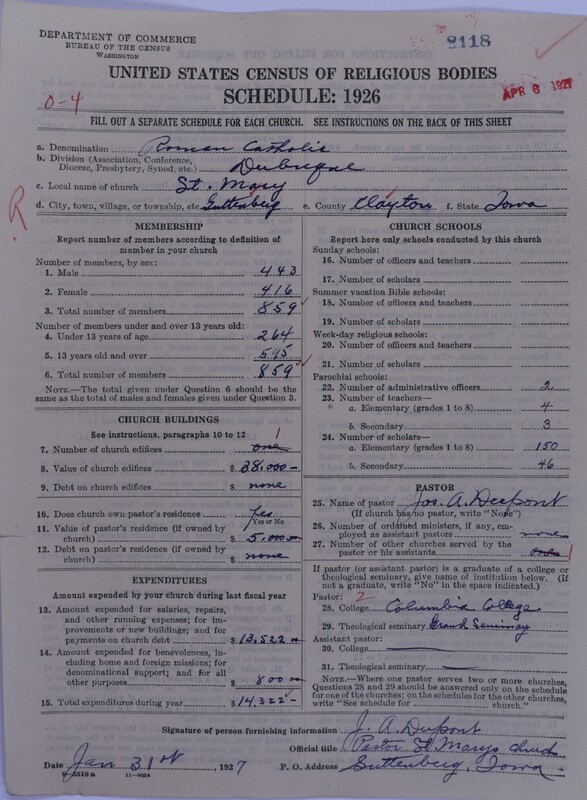 DEPARTMENT OF COMMERCE
BUREAU OF THE CENSUS
WASHINGTON
2118
UNITED STATES CENSUS OF RELIGIOUS BODIES
SCHEDULE: 1926
0-4
APR 6 1927
FILL OUT A SEPARATE SCHEDULE FOR EACH CHURCH. SEE INSTRUCTIONS ON THE BACK OF THIS SHEET
a. Denomination Roman Catholic
b. Division (Association, Conference,
Diocese, Presbytery, Synod, etc.) Dubuque
c. Local name of church St. Mary
d. City, town, village, or township, etc. Guttenberg e. County Clayton f. State Iowa
R
MEMBERSHIP
Report number of members according to definition of
member in your church
Number of members, by sex:
1. Male 443
2. Female 416
3. Total number of members 859
Number of members under and over 13 years old:
4. Under 13 years of age 264
5. 13 years old and over 595
6. Total number of members 859
NOTE.—The total given under Question 6 should be
same as the total of males and females given under Question 3.
CHURCH BUILDINGS
See instructions, paragraphs 10 to 12
1
7. Number of church edifices one
8. Value of church edifices $ 38,000 -
9. Debt on church edifices $ none
10. Does church own pastor's residence Yes
Yes or No
11. Value of pastor's residence (if owned by
church) $ 5,000 -
12. Debt on pastor's residence (if owned by
church) $ none
EXPENDITURES
Amount expended by your church during last fiscal year
13. Amount expended for salaries, repairs,
and other running expenses; for im-
provements or new buildings; and for
payments on church debt $ 13,522 -
14. Amount expended for benevolences, in-
cluding home and foreign missions; for
denominational support; and for all
other purposes $ 800 -
15. Total expenditures during year $ 14,322 -
CHURCH SCHOOLS
Report here only schools conducted by this church
Sunday schools:
16. Number of officers and teachers
17. Number of scholars
Summer vacation Bible schools:
18. Number of officers and teachers
19. Number of scholars
Week-day religious schools:
20. Number of officers and teachers
21. Number of scholars
Parochial schools:
22. Number of administrative officers 2
23. Number of teachers—
a. Elementary (grades 1 to 8) 4
b. Secondary 3
24. Number of scholars—
a. Elementary (grades 1 to 8) 150
b. Secondary 46
PASTOR
25. Name of pastor Jos. A. Dupont
(If church has no pastor, write "None")
26. Number of ordained ministers, if any, em-
ployed as assistant pastors none
27. Number of other churches served by the
pastor or his assistants one 1
If pastor (or assistant pastor) is a graduate of a college or
theological seminary, give name of institution below. (If
not a graduate, write "No" in the space indicated.)
Pastor: 2
28. College Columbia College
29. Theological seminary Grand Seminay
Assistant pastor:
30. College
31. Theological seminary
NOTE.—Where one pastor serves two or more churches,
Questions 28 and 29 should be answered only on the schedule
for one of the churches; on the schedules for the other churches,
write "See schedule for church."
Signature of person furnishing information J. A. Dupont
Official title Pastor St Marys church
Date Jan 31st, 1927 P. O. Address Guttenberg, Iowa
9-5518a 11-9024